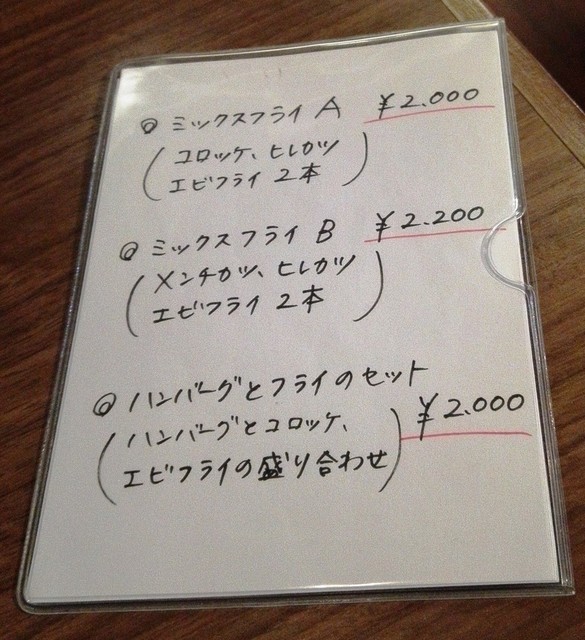 ◎ ミックスフライ A ¥2.000
(コロッケ、ヒレカツ
エビフライ 2本)
◎ ミックスフライ B ¥2.200
(メンチカツ、ヒレカツ
エビフライ 2本)
◎ ハンバーグとフライのセット
¥2.000
(ハンバーグとコロッケ、
エビフライの盛り合わせ)